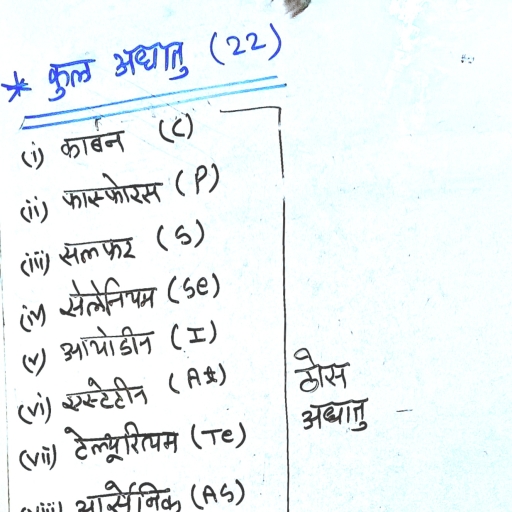 * कुल अधातु (22)
(i) कार्बन (C)
(ii) फास्फोरस (P)
(iii) सलफर (S)
(iv) सेलेनियम (Se)
(v) आयोडीन (I)
(vi) एस्टेटीन (At)
(vii) टेल्यूरियम (Te)
(viii) आर्सेनिक (As)
ठोस
अधातु -